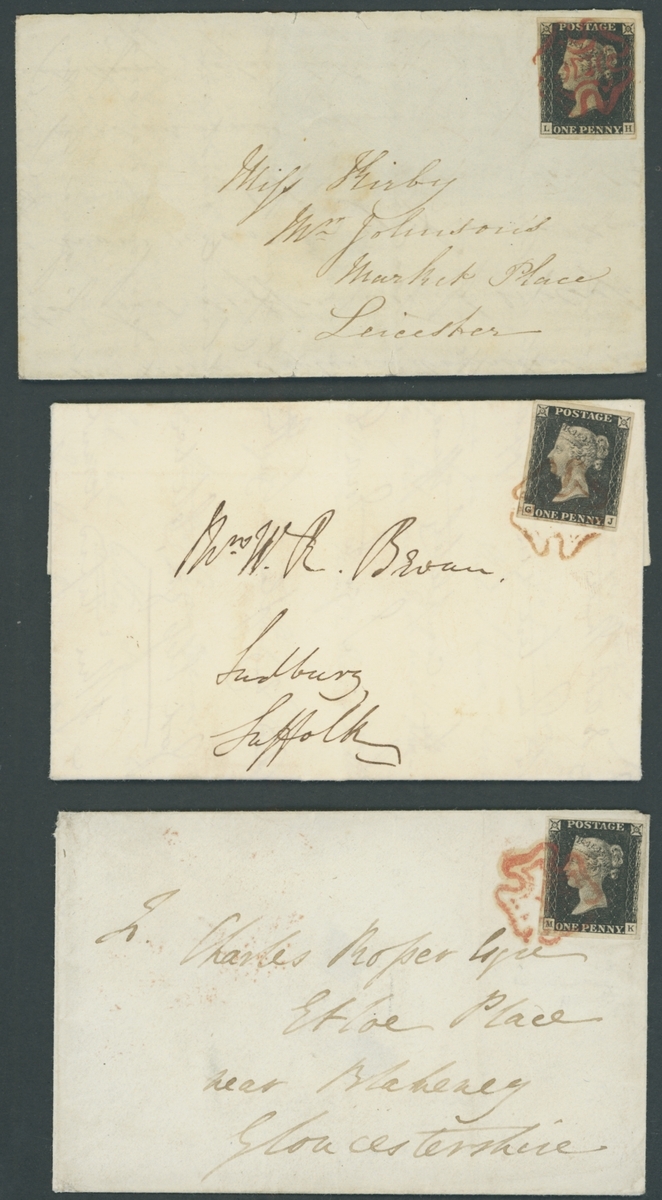 POSTAGE
L ONE PENNY H
Miss Kirby
Mrs Johnson's
Market Place
Leicester
POSTAGE
G ONE PENNY J
Mrs W. R. Bevan.
Sudbury
Suffolk
POSTAGE
M ONE PENNY K
Charles Roper Esqre
Etloe Place
near Blakeney
Gloucestershire